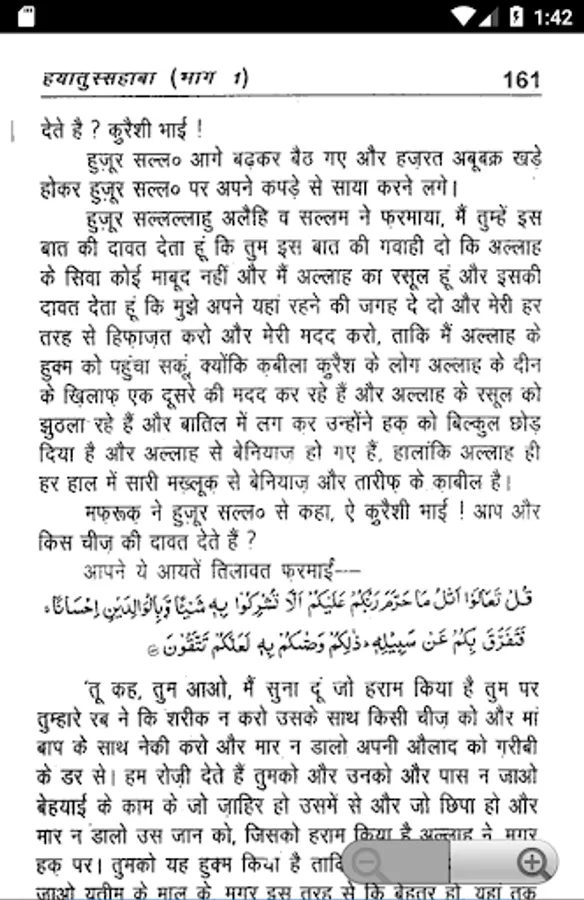 1:42
हयातुस्सहाबा (भाग 1) 161
देते है ? कुरैशी भाई !
हुज़ूर सल्ल० आगे बढ़कर बैठ गए और हज़रत अबूबक्र खड़े
होकर हुज़ूर सल्ल० पर अपने कपड़े से साया करने लगे।
हुज़ूर सल्लल्लाहु अलैहि व सल्लम ने फ़रमाया, मैं तुम्हें इस
बात की दावत देता हूं कि तुम इस बात की गवाही दो कि अल्लाह
के सिवा कोई माबूद नहीं और मैं अल्लाह का रसूल हूं और इसकी
दावत देता हूं कि मुझे अपने यहां रहने की जगह दे दो और मेरी हर
तरह से हिफ़ाज़त करो और मेरी मदद करो, ताकि मैं अल्लाह के
हुक्म को पहुंचा सकूं, क्योंकि क़बीला कुरैश के लोग अल्लाह के दीन
के ख़िलाफ़ एक दूसरे की मदद कर रहे हैं और अल्लाह के रसूल को
झुठला रहे हैं और बातिल में लग कर उन्होंने हक़ को बिल्कुल छोड़
दिया है और अल्लाह से बेनियाज़ हो गए हैं, हालांकि अल्लाह ही
हर हाल में सारी मख़्लूक़ से बेनियाज़ और तारीफ़ के क़ाबील है।
मफ़रूक़ ने हुज़ूर सल्ल० से कहा, ऐ कुरैशी भाई ! आप और
किस चीज़ की दावत देते हैं ?
आपने ये आयतें तिलावत फ़रमाईं---
قُلْ تَعَالَوْا اَتْلُ مَا حَرَّمَ رَبُّكُمْ عَلَيْكُمْ اَلَّا تُشْرِكُوْا بِهٖ شَيْئًا وَّبِالْوَالِدَيْنِ اِحْسَانًا
فَتَفَرَّقَ بِكُمْ عَنْ سَبِيْلِهٖ ذٰلِكُمْ وَصّٰكُمْ بِهٖ لَعَلَّكُمْ تَتَّقُوْنَ
'तू कह, तुम आओ, मैं सुना दूं जो हराम किया है तुम पर
तुम्हारे रब ने कि शरीक न करो उसके साथ किसी चीज़ को और मां
बाप के साथ नेकी करो और मार न डालो अपनी औलाद को ग़रीबी
के डर से। हम रोज़ी देते हैं तुमको और उनको और पास न जाओ
बेहयाई के काम के जो ज़ाहिर हो उसमें से और जो छिपा हो और
मार न डालो उस जान को, जिसको हराम किया है अल्लाह ने, मगर
हक़ पर। तुमको यह हुक्म किया है
जाओ यतीम के माल के, मगर इस तरह से कि बेहतर हो, यहां तक